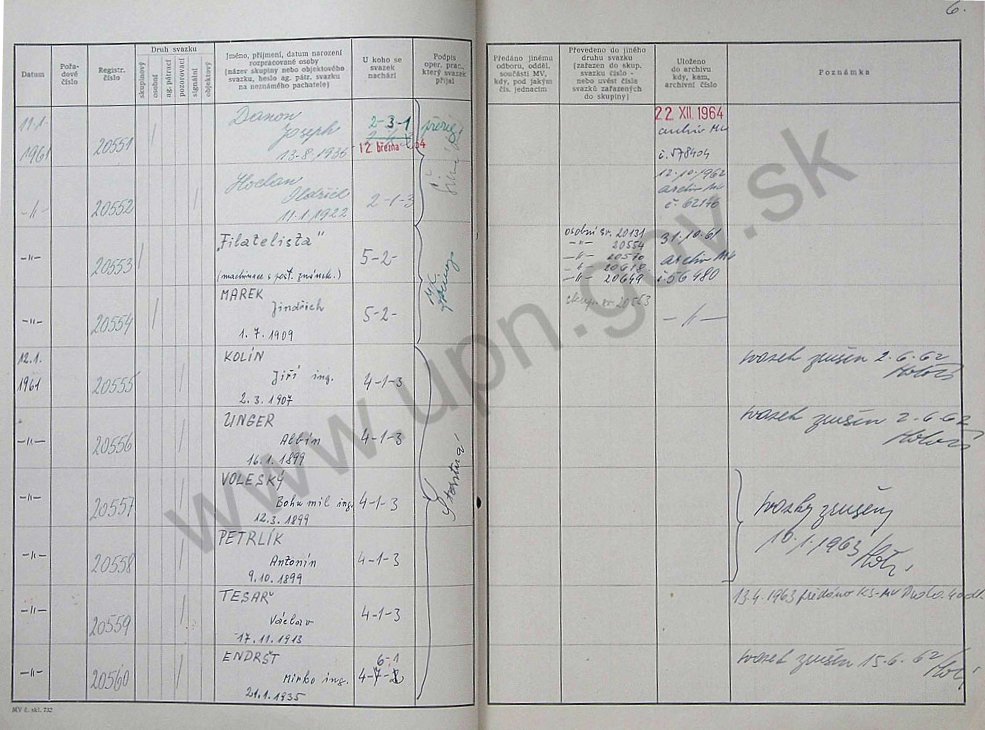 6.
Datum
Pořa-
dové
číslo
Registr.
číslo
Druh svazku
skupinový
osobní
ag. pátrací
pozorovací
signální
objektový
Jméno, příjmení, datum narození
rozpracované osoby
(název skupiny nebo objektového
svazku, heslo ag. pátr. svazku
na neznámého pachatele)
U koho se
svazek
nachází
Podpis
oper. prac.,
který svazek
přijal
Předáno jinému
odboru, odděl.
součásti MV,
kdy, pod jakým
čís. jednacím
Převedeno do jiného
druhu svazku
(zařazen do skup.
svazku číslo -
nebo uvést čísla
svazků zařazených
do skupiny)
Uloženo
do archivu
kdy, kam,
archivní číslo
Poznámka
11.1.
1961
20551
Danon
Joseph
13.8.1935
2-3-1
12. března
22. XII. 1964
archiv MV
č. 578404
-"-
20552
Oldřich
11.1.1922
2-1-3
12.10.1962
archiv MV
č. 62146
-"-
20553
„Filatelista"
(machinace s pošt. známk.)
5-2-
osobní sv. 20131
-"- 20554
-"- 20570
-"- 20618
-"- 20649
31.10.61
archiv MV
č. 56480
-"-
20554
MAREK
Jindřich
1. 7. 1909
5-2-
skup. sv 20553
-"-
12.1.
1961
20555
KOLÍN
Jiří ing.
2. 3. 1907
4-1-3
svazek zrušen 2.6.62
-"-
20556
UNGER
Albín
16.1.1899
4-1-3
svazek zrušen 2.6.62
-"-
20557
VOLESKÝ
Bohumil ing.
12.3.1899
4-1-3
svazky zrušeny
10.1.1963
-"-
20558
PETRLÍK
Antonín
9.10.1899
4-1-3
-"-
20559
TESAŘ
Václav
17.11.1913
4-1-3
13.4.1963 předáno KS-MV
-"-
20560
ENDRŠT
Mirko ing.
21.1.1935
6-1
svazek zrušen 15.6.62
MV č. skl. 732
www.upn.gov.sk